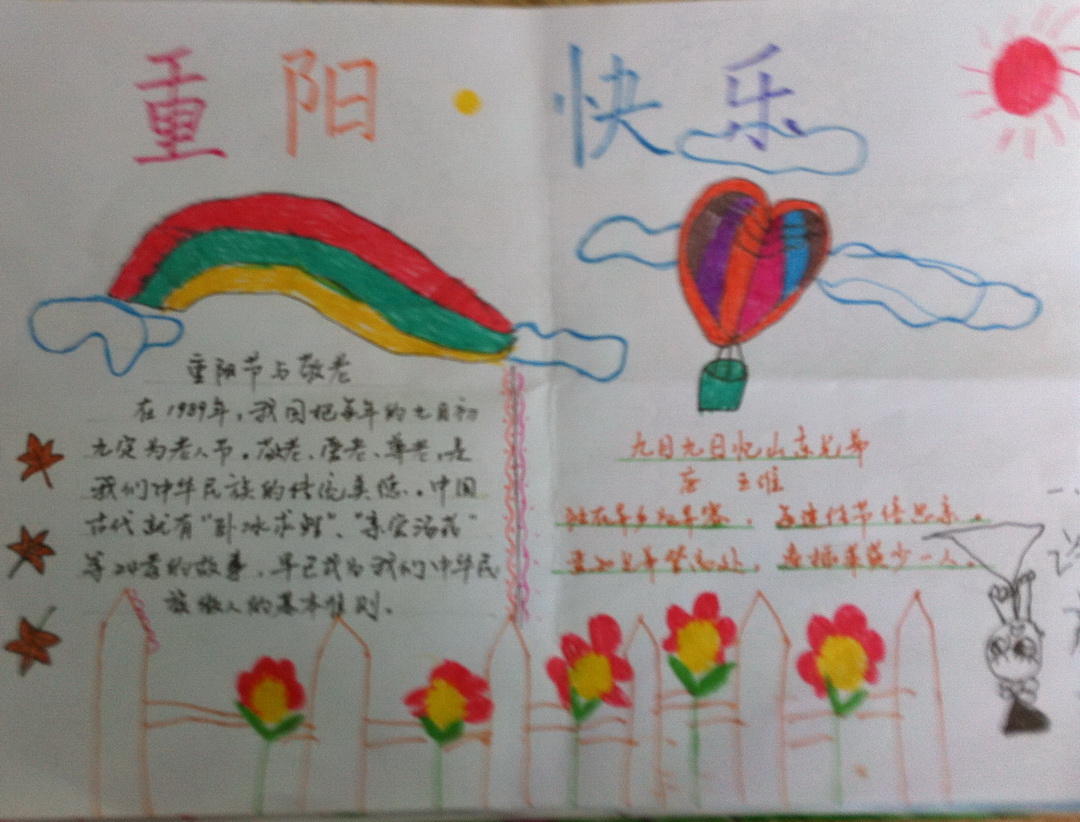 重阳快乐
重阳节与敬老
在1989年,我国把每年的九月初
九定为老人节。敬老、爱老、尊老,是
我们中华民族的传统美德。中国
古代就有"卧冰求鲤"、"亲尝汤药"
等24孝的故事,早已成为我们中华民
族做人的基本准则。
九月九日忆山东兄弟
唐 王维
独在异乡为异客,每逢佳节倍思亲。
遥知兄弟登高处,遍插茱萸少一人。